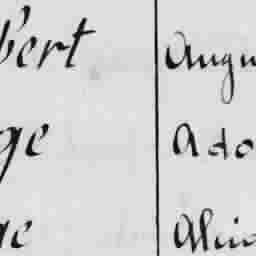 bert Augu
ge Ado
ge Alcid